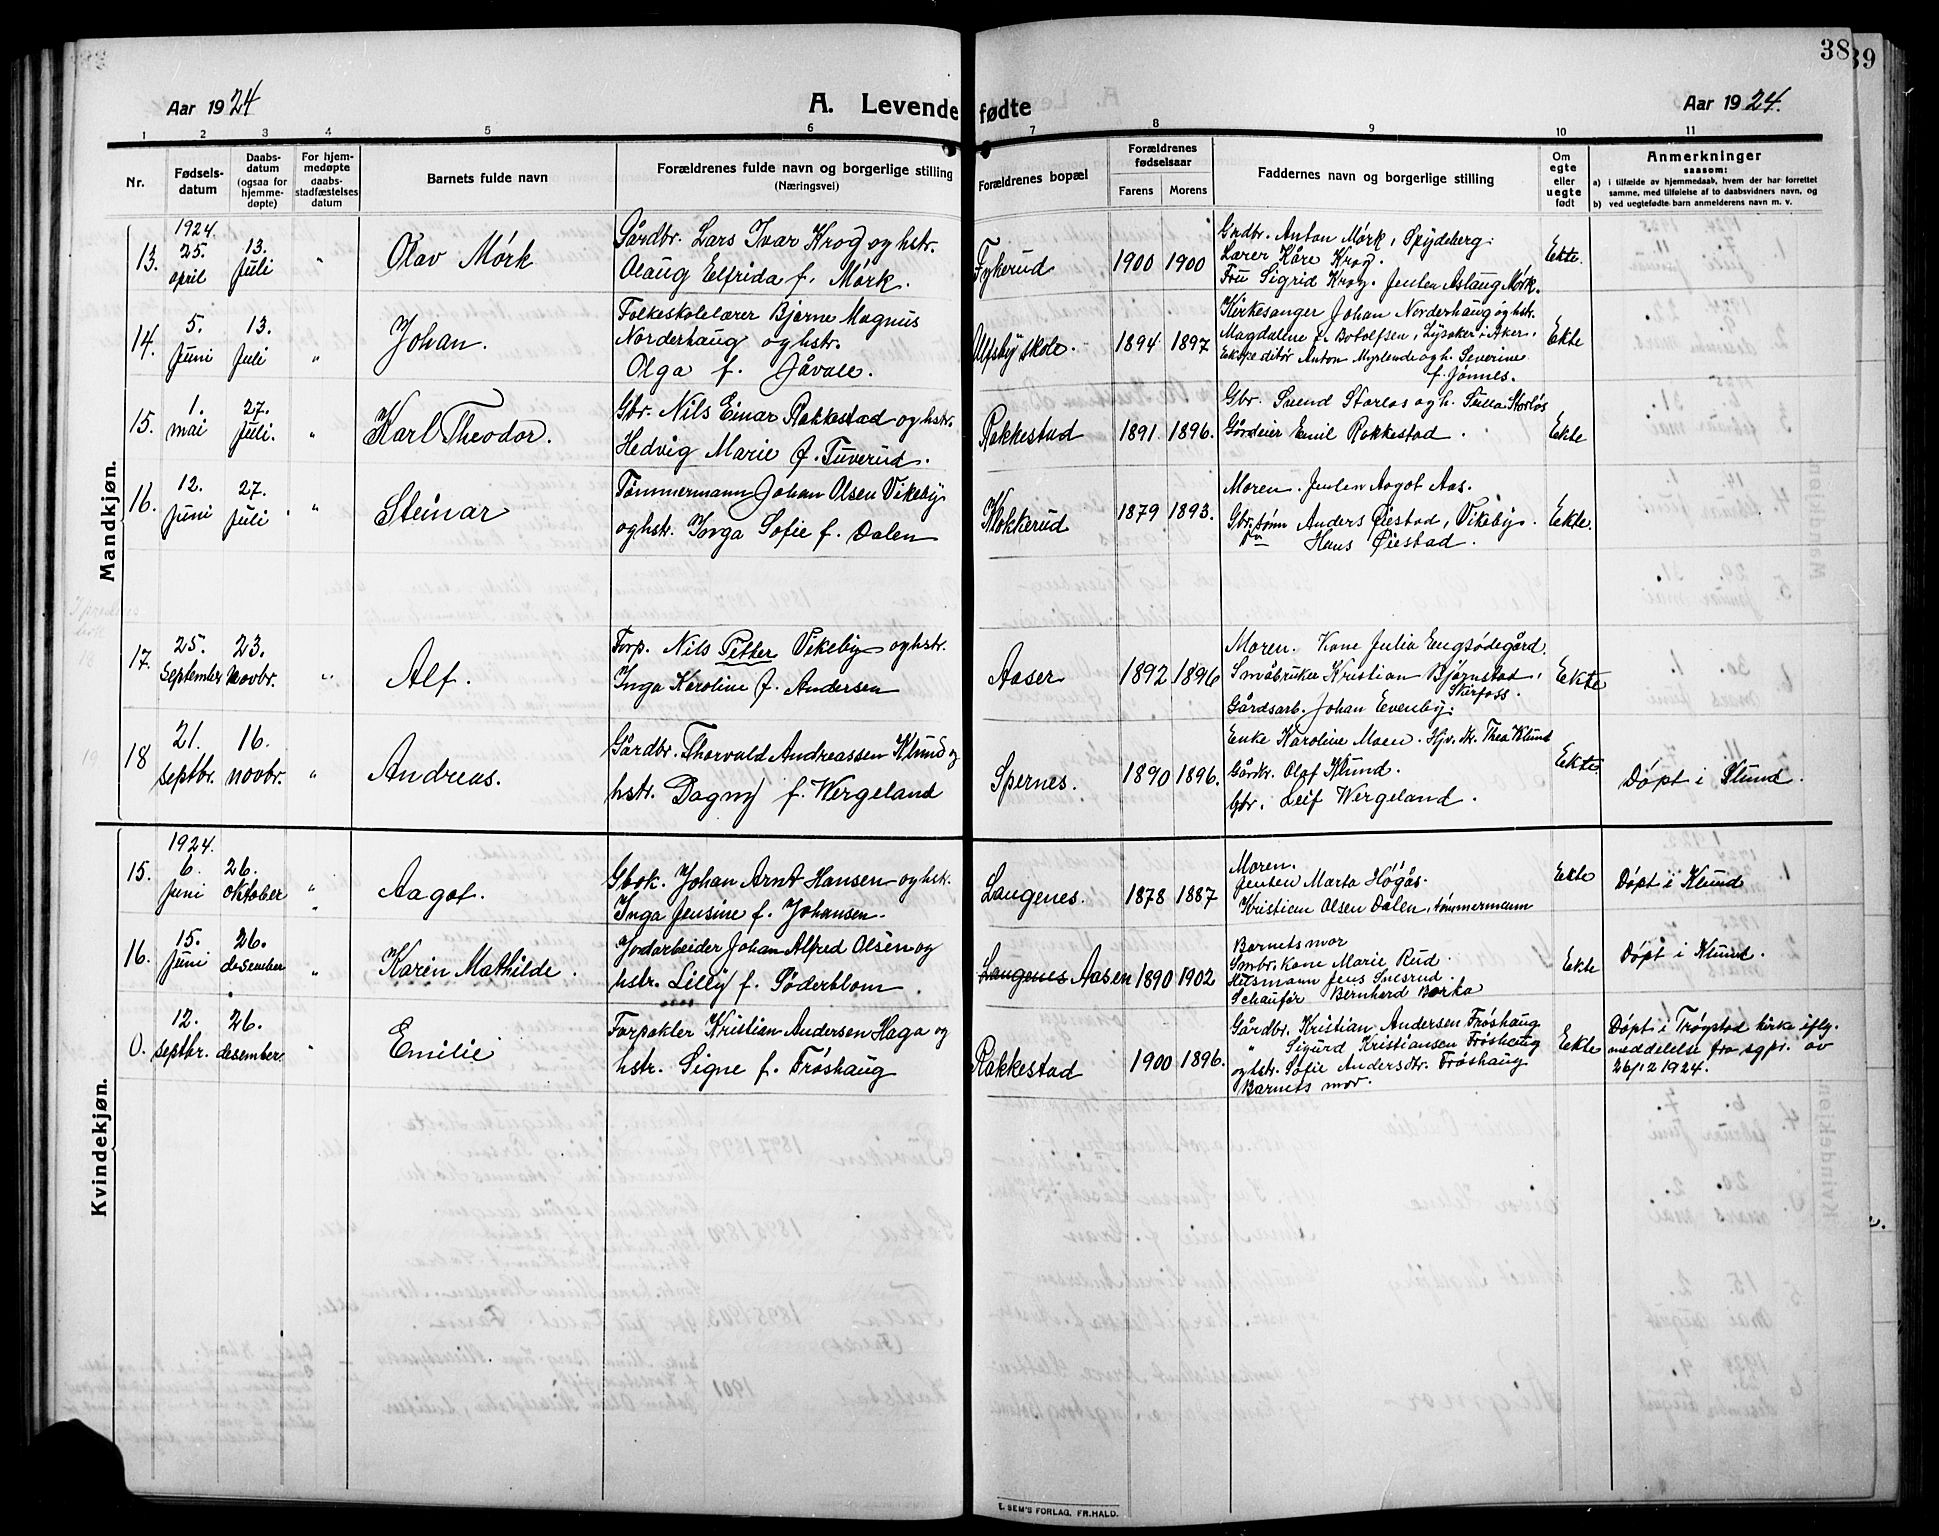 38
39
Aar 1924
A. Levende fødte
Aar 1924.
1 2 3 4 5 6 7 8 9 10 11
Nr.
Fødsels-
datum
Daabs-
datum
(ogsaa for
hjemme-
døpte)
For hjem-
medøpte
daabs-
stadfæstelses
datum
Barnets fulde navn
Forældrenes fulde navn og borgerlige stilling
(Næringsvei)
Forældrenes bopæl
Forældrenes
fødselsaar
Farens Morens
Faddernes navn og borgerlige stilling
Om
egte
eller
uegte
født
Anmerkninger
saasom:
a) i tilfælde av hjemmedaab, hvem der har forrettet
samme, med tilføielse af to daabsvidners navn, og
b) ved uegtefødte barn anmelderens navn m. v.
Mandkjøn.
1924.
13. 25. april 13. Juli " Olav Mørk
Gårdbr. Lars Ivar Krog og hstr.
Olaug Elfrida f. Mørk.
Fykerud 1900 1900
Grdbr. Anton Mørk, Spydeberg.
Lærer Kåre Krog.
Fru Sigrid Krog. Jenten Aslaug Mørk.
Ekte.
14. 5. Juni 13. Juli " Johan.
Folkeskolelærer Bjarne Magnus
Norderhaug og hstr.
Olga f. Jåvale.
Ulfsby skole. 1894 1897
Kirkesanger Johan Norderhaug og hstr.
Magdalene f. Botolfsen, Lysaker i Aker.
Ekspeditør Anton Myrlende og h. Severine
f. Jønnes.
Ekte
15. 1. mai 27. Juli. " Karl Theodor.
Gbr. Nils Einar Rakkestad og hstr.
Hedvig Marie f. Tuverud.
Rakkestad 1891. 1896.
Gbr. Svend Storløs og h. Seilla Storløs
Gårdeier Emil Rakkestad.
Ekte
16. 12. Juni 27. Juli " Steinar
Tømmermann Johan Olsen Vikeby
og hstr. Inga Sofie f. Dalen
Klokkerud 1879 1893.
Moren. Jenten Aagot Aas.
Gbr.sønn Anders Øiestad, Vikeby.
Hans Øiestad.
Ekte.
18 17. 25. September 23. Novbr. " Alf.
Forp. Nils Petter Vikeby og hstr.
Inga Karoline f. Andersen
Aaser 1892 1896
Moren. Kone Julia Engsødegård.
Småbruker Kristian Bjørnstad,
Skirfoss.
Gårdsarb. Johan Evenby.
Ekte
19 18 21. septbr. 16. novbr. " Andreas.
Gårdbr. Thorvald Andreassen Klund og
hstr. Dagny f. Wergeland
Spernes. 1890 1896.
Enke Karoline Moen. Hjv. dr. Thea Klund
Gårdbr. Olaf Klund.
Gbr. Leif Wergeland.
Ekte
Døpt i Klund.
Kvindekjøn.
1924.
15. 6. Juni 26. oktober " Aagot.
Gbok. Johan Arnt Hansen og hstr.
Inga Jensine f. Johansen.
Langenes. 1878 1887
Moren.
Jenten Marta Høgås.
Kristian Olsen Dalen, tømmermann
Ekte
Døpt i Klund
16. 15. Juni 26. desember " Karin Mathilde.
Jordarbeider Johan Alfred Olsen og
hstr. Lilly f. Söderblom.
Langenes Aasen 1890 1902
Barnets mor
Smbr. kone Marie Rud
Husmann Jens Snesrud.
Schaufør Bernhard Borka
Ekte
Døpt i Klund.
0. 12. septbr. 26. desember " Emilie
Forpakter Kristian Andersen Haga og
hstr. Signe f. Frøshaug
Rakkestad 1900 1896.
Gårdbr. Kristian Andersen Frøshaug
" Sigurd Kristiansen Frøshaug
og hstr. Sofie Andersdtr. Frøshaug
Barnets mor.
Ekte
Døpt i Trøgstad kirke iflg.
meddelelse fra sgpr. av
26/12 1924.
E. SEM'S FORLAG, FR.HALD.